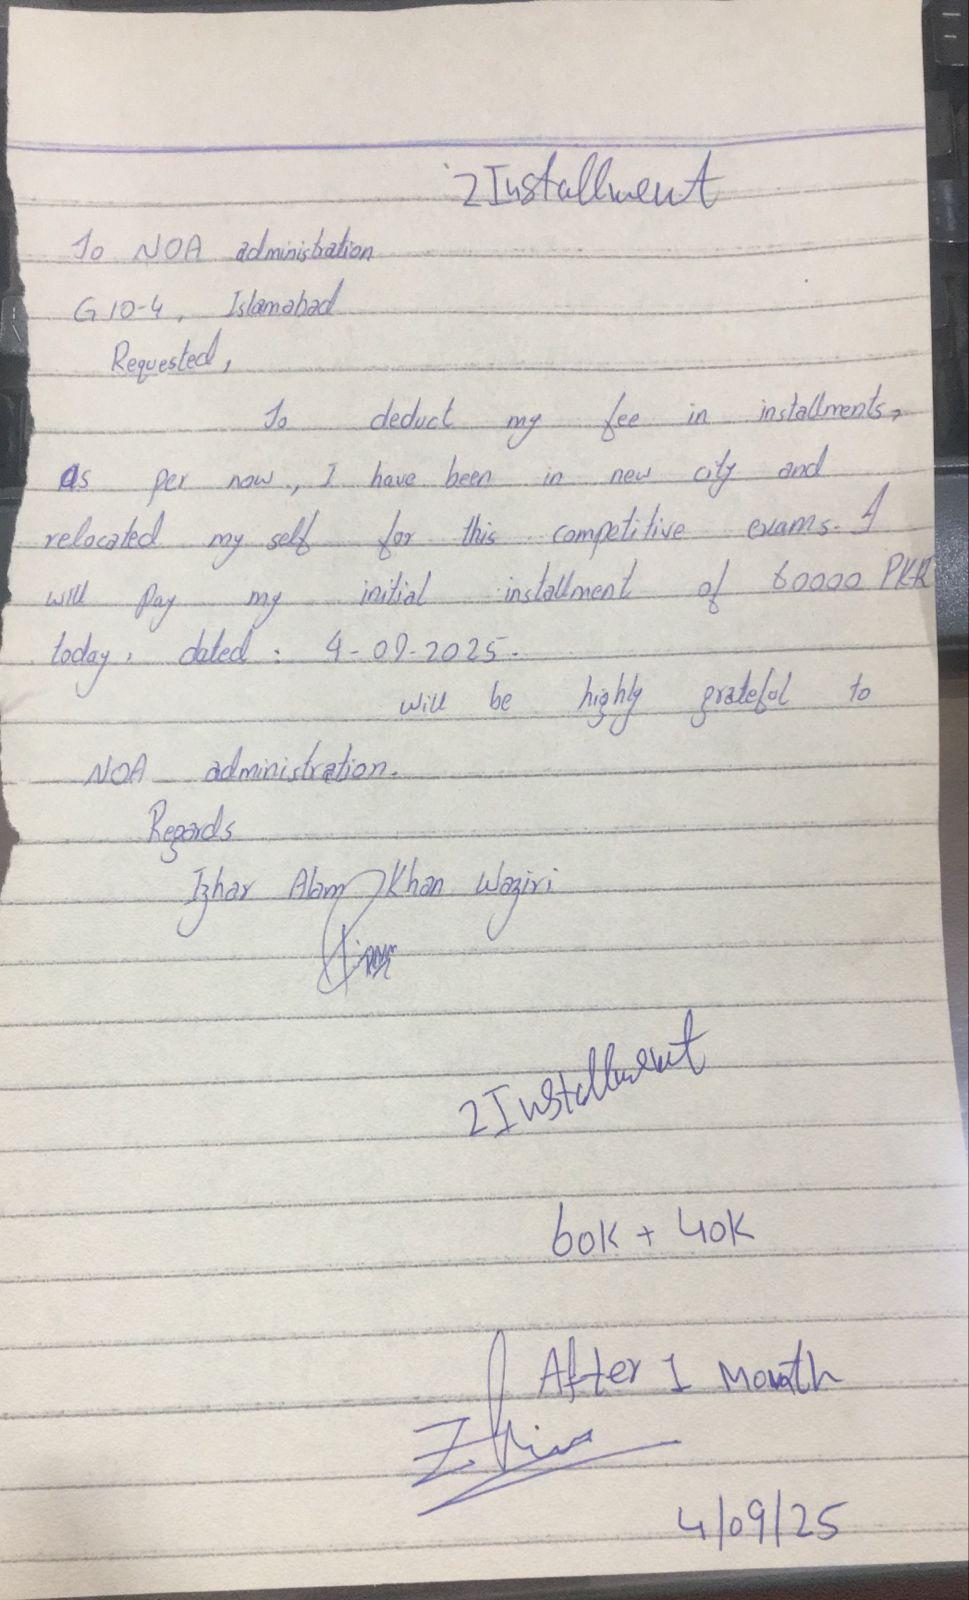 2 Installment
To NOA administration
G 10-4, Islamabad
Requested,
To deduct my fee in installments,
as per now, I have been in new city and
relocated my self for this competitive exams. I
will pay my initial installment of 60000 PKR
today, dated: 4-09-2025.
will be highly grateful to
NOA administration.
Regards
Izhar Alam Khan Waziri
2 Installment
60K + 40K
After 1 Month
4/09/25